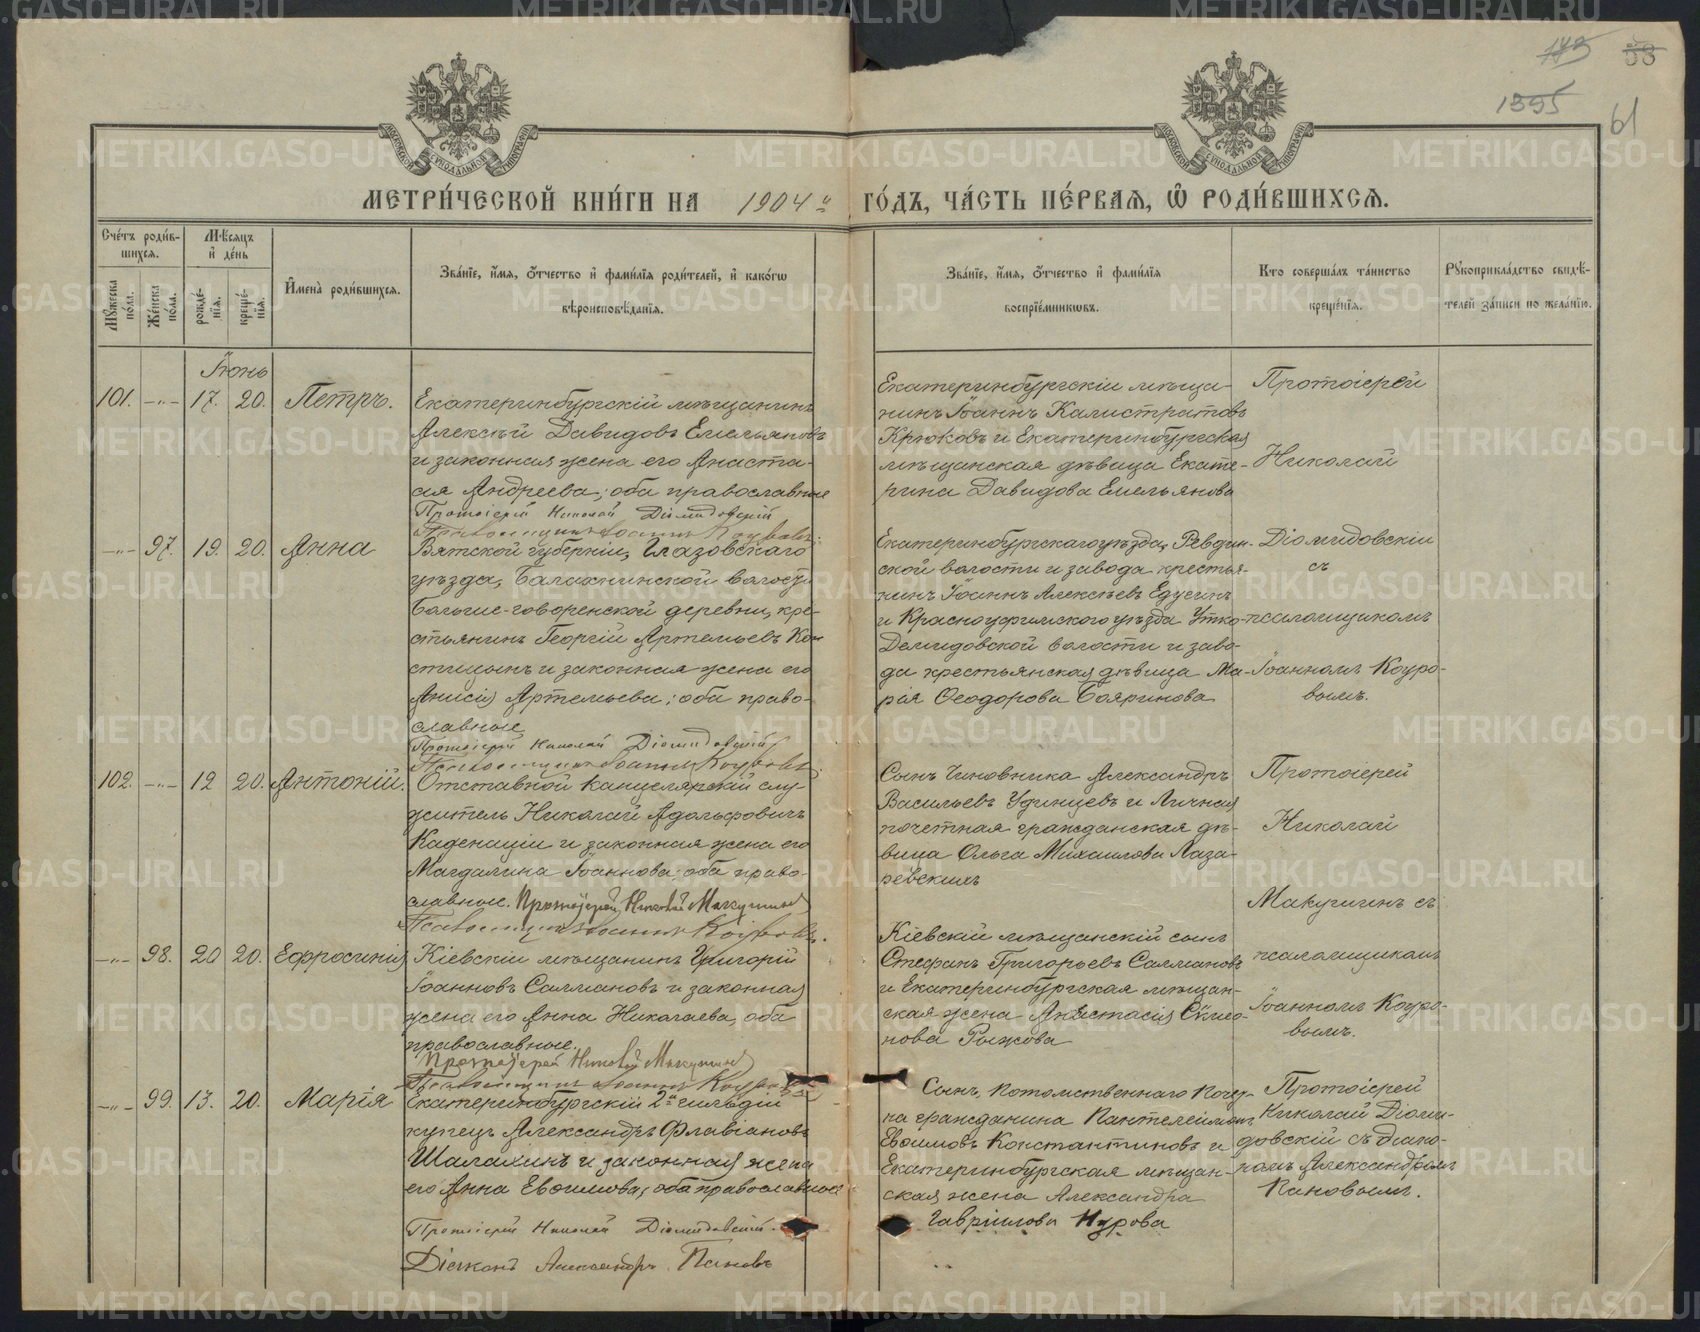 173 53
1395 61
МЕТРИ́ЧЕСКОЙ КНИ́ГИ НА 1904 ГО́ДЪ, ЧА́СТЬ ПЕ́РВАЯ, Ѡ РОДИ́ВШИХСЯ.
Сче́тъ роди́вшихся.
Му́жеска по́ла.
Же́нска по́ла.
Мѣсяцъ и́ де́нь
рожде́нїя.
креще́нїя.
И́мена̀ роди́вшихся.
Зва́нїе, и́мя, ѻ́тчество и́ фами́лїя роди́телей, и́ како́гѡ
вѣроисповѣ́данїя.
Зва́нїе, и́мя, ѻ́тчество и́ фами́лїя
воспрїе́мникѡвъ.
Кто̀ соверша́лъ та́инство
креще́нїя.
Рукоприкла́дство свидѣ́-
телей за́писи по жела́нїю.
Іюнь
101. —„— 17. 20. Петръ.
Екатеринбургскій мѣщанинъ
Алексѣй Давидовъ Емельяновъ
и законная жена его Анаста-
сія Андреева; оба православные
Протоіерей Николай Діомидовскій
Псаломщикъ Іоаннъ Коуровъ.
Екатеринбургскій мѣща-
нинъ Іоаннъ Калистратовъ
Крюковъ и Екатеринбургская
мѣщанская дѣвица Екате-
рина Давидова Емельянова
Протоіерей
Николай
—„— 97. 19. 20. Анна
Вятской губерніи, Глазовскаго
уѣзда, Балахнинской волости
Больше-говоренской деревни, кре-
стьянинъ Георгій Артемьевъ Кон
стицынъ и законная жена его
Анисія Артемьева; оба право-
славные
Протоіерей Николай Діомидовскій
Псаломщикъ Іоаннъ Коуровъ.
Екатеринбургскаго уѣзда, Ревдин-
ской волости и завода крестья-
нинъ Іоаннъ Алексѣевъ Едугинъ
и Красноуфимскаго уѣзда Утко-
Демидовской волости и заво-
да крестьянская дѣвица Ма-
рія Ѳеодорова Бояринова
Діомидовскій
съ
псаломщикомъ
Іоанномъ Коуро-
вымъ.
102. —„— 12 20. Антоній.
Отставной канцелярскій слу-
житель Николай Адольфовичъ
Каденацій и законная жена его
Магдалина Іоаннова; оба право-
славные. Протоіерей Николай Макушинъ
Псаломщикъ Іоаннъ Коуровъ.
Сынъ Чиновника Александръ
Васильевъ Удинцевъ и Личная
почетная гражданская дѣ-
вица Ольга Михаилова Лаза-
ревскихъ
Протоіерей
Николай
Макушинъ съ
—„— 98. 20 20. Ефросинія
Кіевскій мѣщанинъ Григорій
Іоанновъ Салмановъ и законная
жена его Анна Николаева, оба
православные.
Протоіерей Николай Макушинъ
Псаломщикъ Іоаннъ Коуровъ
Кіевскій мѣщанскій сынъ
Стефанъ Григорьевъ Салмановъ
и Екатеринбургская мѣщан-
ская жена Анастасія Симео-
нова Рыжова
псаломщикомъ
Іоанномъ Коуро-
вымъ.
—„— 99. 13. 20. Марія
Екатеринбургскій 2й гильдіи
купецъ Александръ Флавіановъ
Шалахинъ и законная жена
его Анна Евѳимова; оба православные
Протоіерей Николай Діомидовскій.
Діаконъ Александръ Пановъ
Сынъ потомственнаго Поче-
на гражданина Пантелеимонъ
Евѳимовъ Константиновъ и
Екатеринбургская мѣщан-
ская жена Александра
Гавріилова Нурова
Протоіерей
Николай Діоми-
довскій съ діако-
номъ Александромъ
Пановымъ.
METRIKI.GASO-URAL.RU